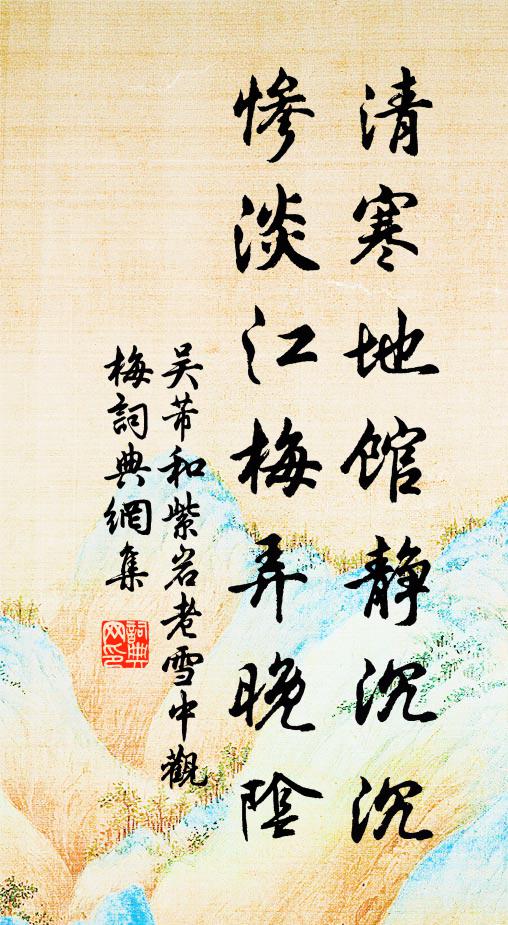 清寒地馆静沉沉
惨淡江梅弄晚阴
吴芾和紫岩老雪中觀
梅詞典網集
詞典網印